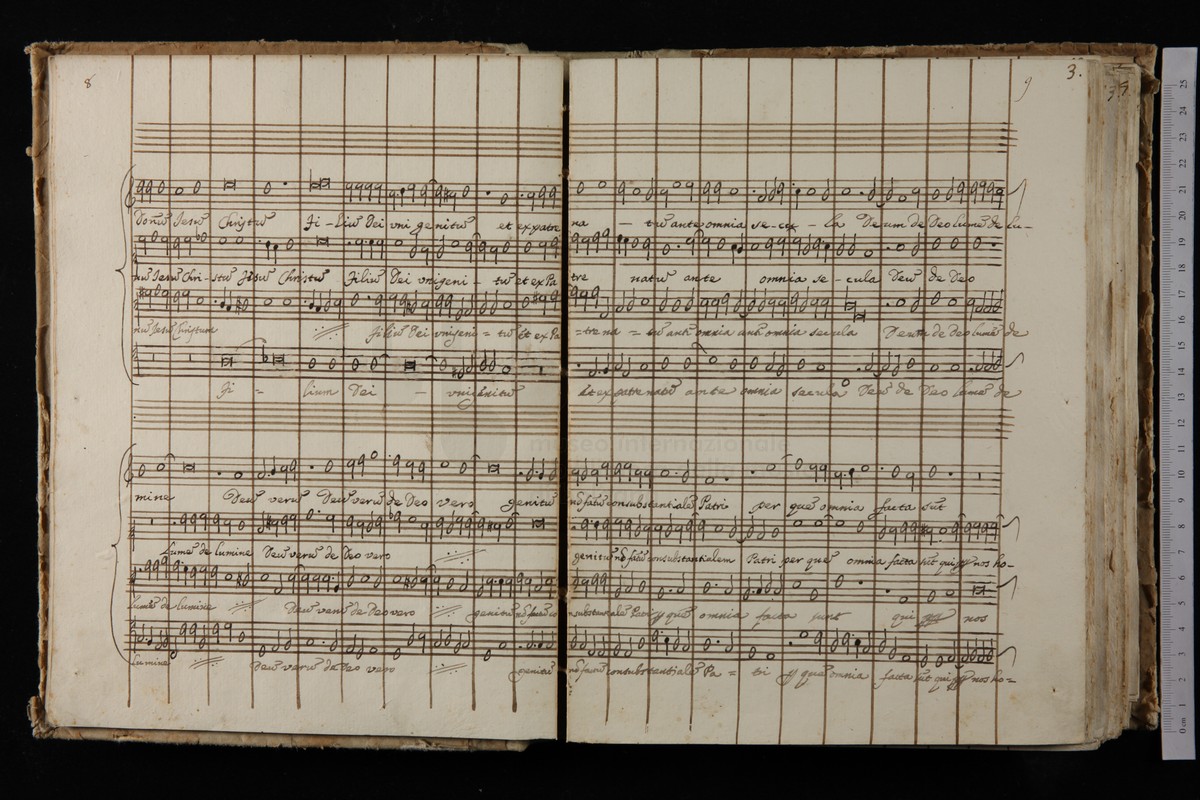 8
9
3.
Jesu Christu Fi-liu Dei uni genitu et ex patre na tu ante omnia se-cu-la Deum de Deo lume de lu-
Jesu Chri-stu Jesu Christu Filiu Dei unigeni-tu et ex Pa tre natu ante omnia se-cula Deu de Deo
Jesu Christum Filiu Dei unigeni=tu et ex Pa =tre na=tu ante omnia ante omnia secula Deum de Deo lume de
Fi=lium Dei - unigenitu Et ex patre natu ante omnia secula Deu de Deo lume de
museo internazionale
mine Deu veru Deu veru de Deo vero genitu no factu consubstantiale Patri per que omnia facta sut
Lume de lumine Deu veru de Deo vero genitu no factu consubstantialem Patri per que omnia facta sut qui nos ho-
lume de lumine Deu veru de Deo vero genitu no factu co nsubstantiale Patri que omnia facta sunt qui nos
lumine Deu veru de Deo vero genitu no factu consubstantiale Pa=tri que omnia facta sut qui nos ho=
0 cm 1 2 3 4 5 6 7 8 9 10 11 12 13 14 15 16 17 18 19 20 21 22 23 24 25